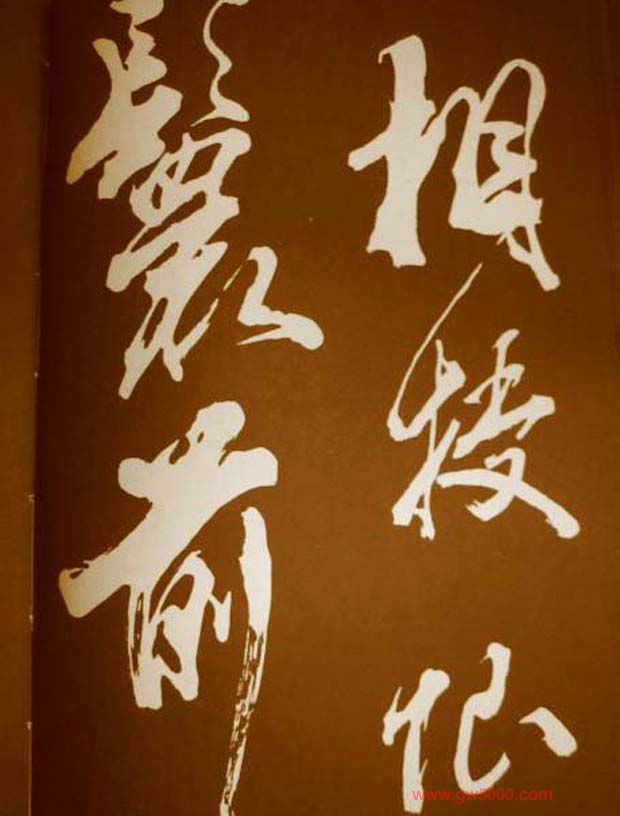 相恨
鬟前
www.gw5000.com